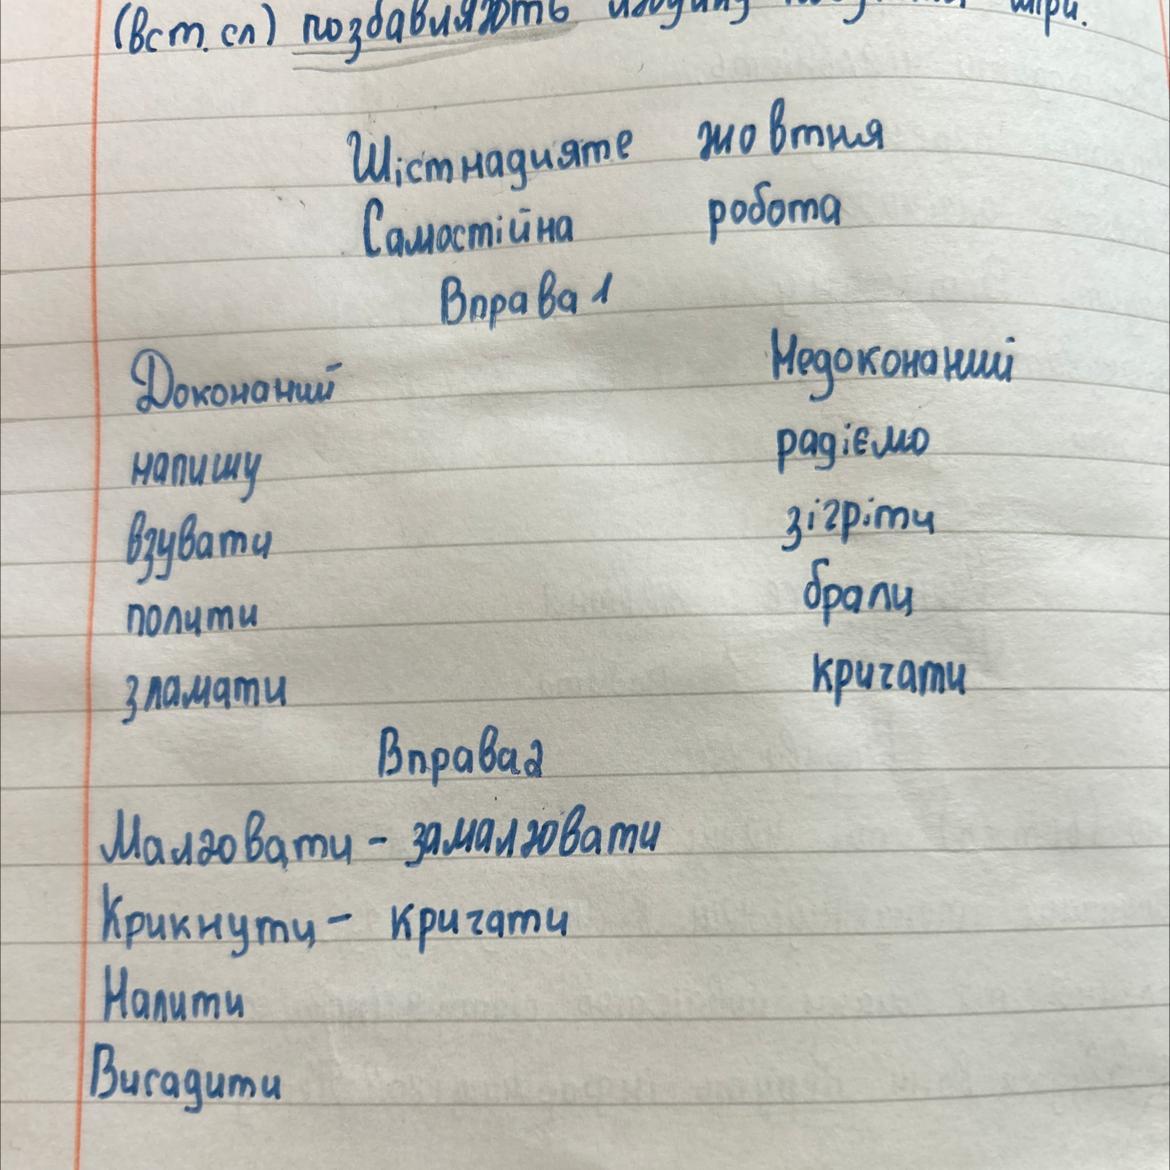 (вст. сл) позбавляють людину
Шістнадцяте жовтня
Самостійна робота
Вправа 1
Доконаний Недоконаний
напишу радіємо
взувати зігріти
полити брали
зламати кричати
Вправа 2
Малювати - замалювати
Крикнути - кричати
Налити
Висадити